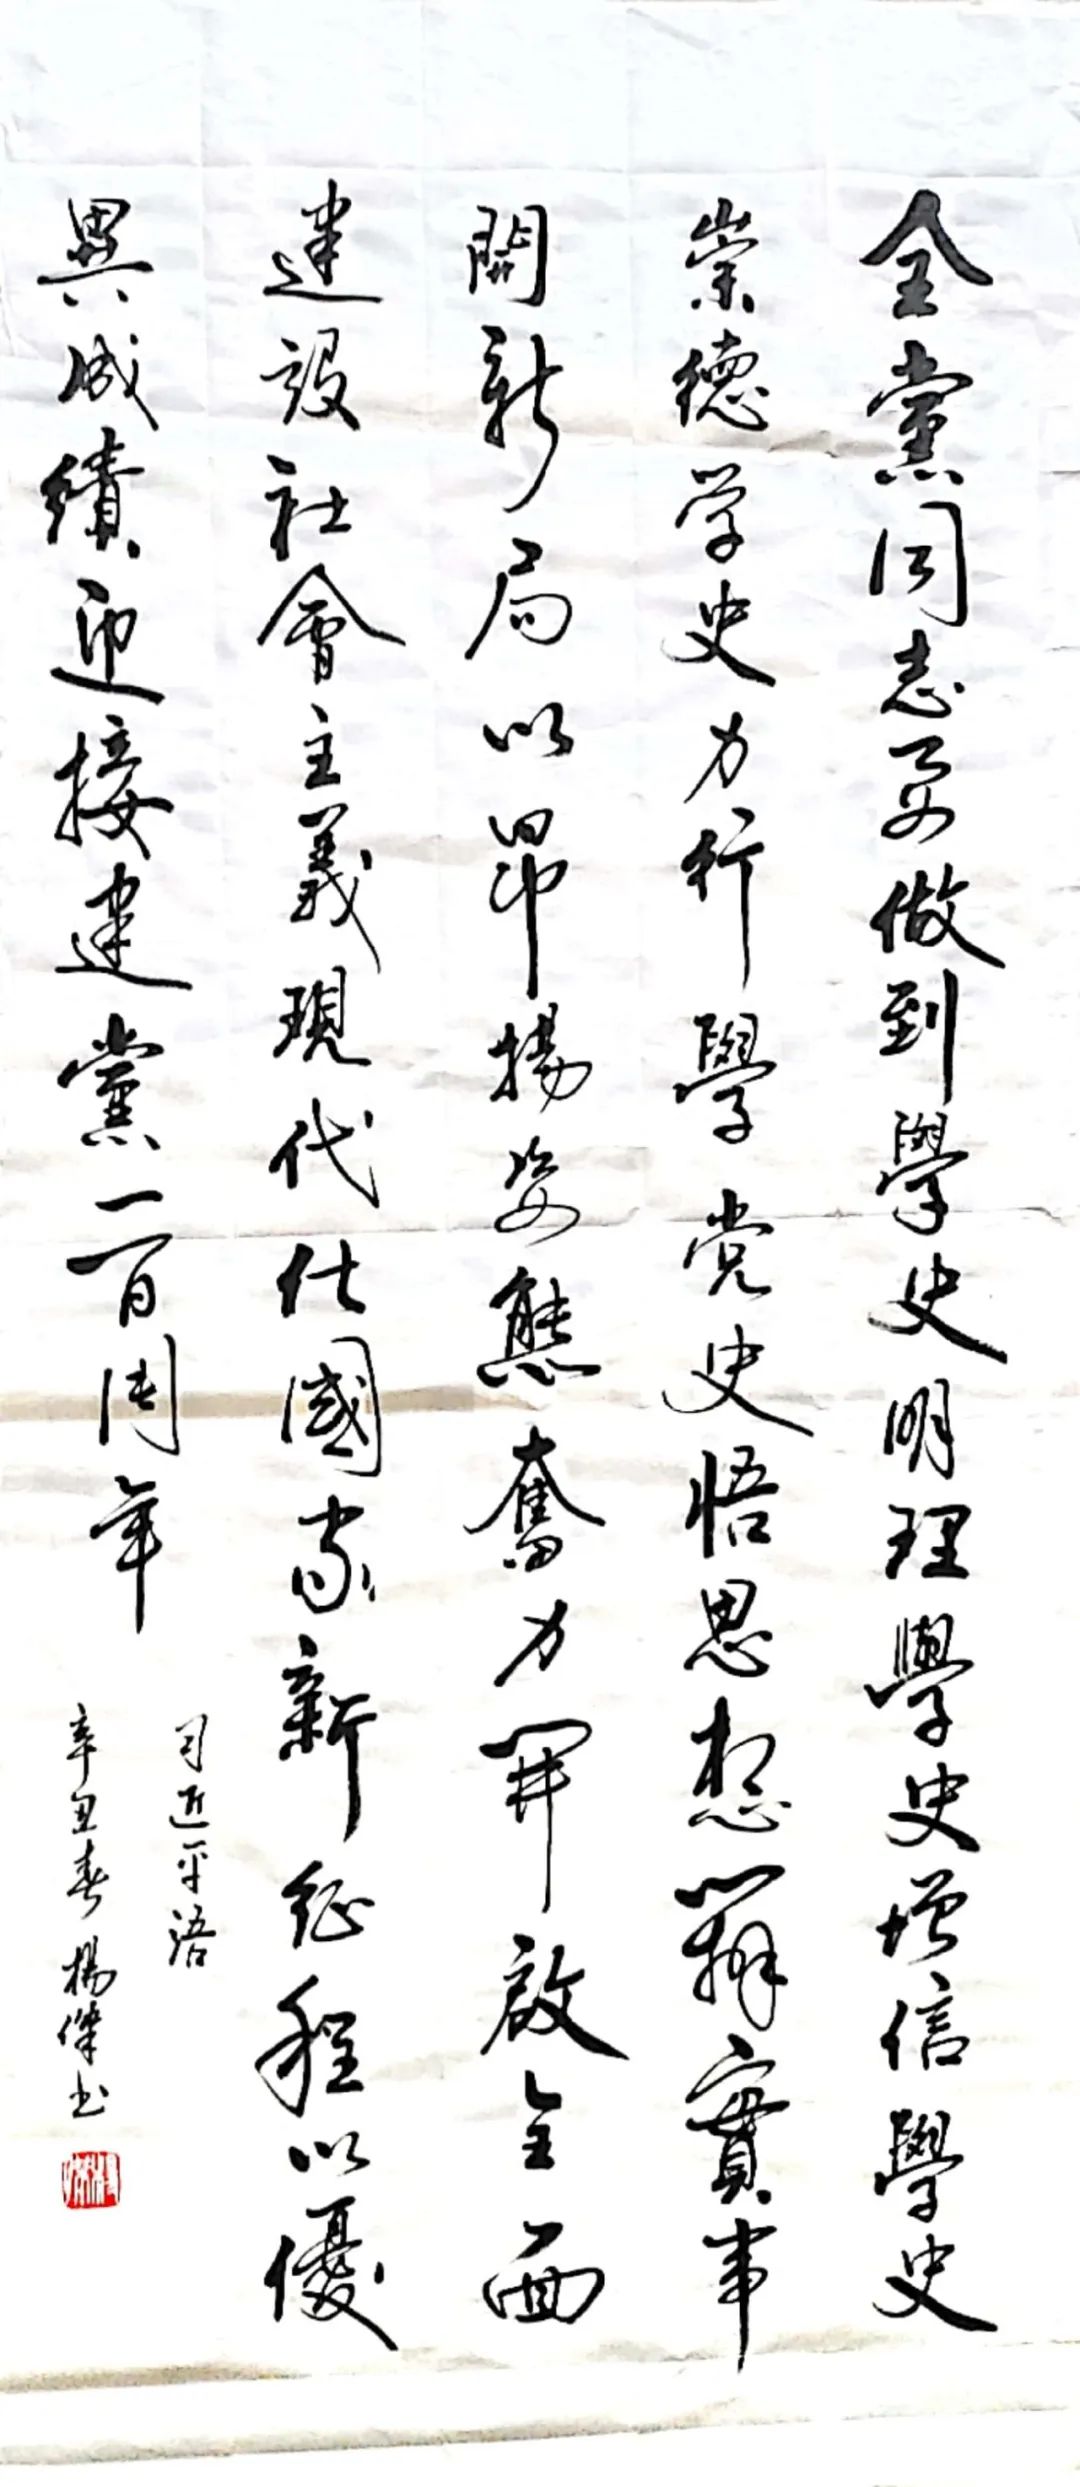 全黨同志要做到學史明理學史增信學史
崇德学史力行學党史悟思想辦實事
開新局以昂揚姿態奮力開啟全面
建設社會主義現代化國家新征程以優
異成績迎接建黨一百周年
习近平语
辛丑春楊傑书